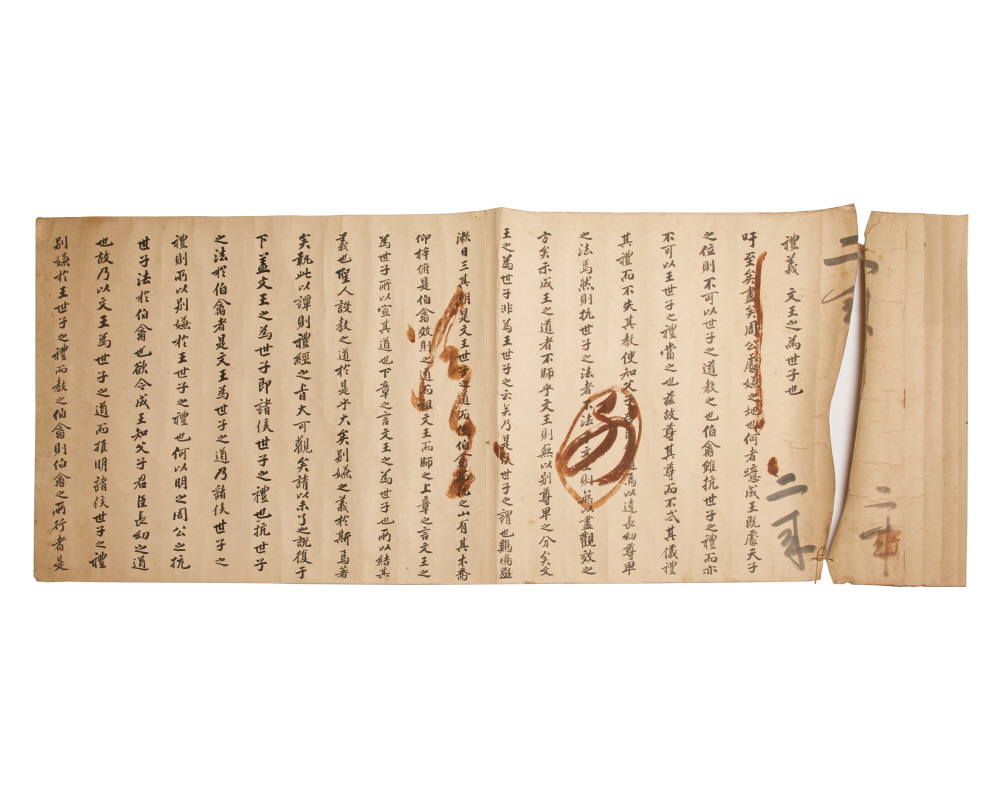 二 来
二 来
二 来
禮義 文王之為世子也
吁至矣盡矣周公處嫌之地也何者噫成王既處天子
之位則不可以世子之道教之也伯禽雖抗世子之禮而亦
不可以王世子之禮當之也玆故尊其尊而不忒其儀禮
其禮而不失其教使知父子 以達長幼尊卑
之法焉然則抗世子之法者不法 則無以盡觀效之
方矣示成王之道者不師乎文王則無以別尊卑之分矣文
王之為世子非為王世子之云矣乃是 侯世子之謂也鷄鳴盥
漱日三其朝是文王世子之道而 伯禽 之山有其木喬
仰梓俯是伯禽效則之道而祖文王而師之上章之言文王之
為世子所以宣其道也下章之言文王之為世子也所以結其
義也聖人設教之道於是乎大矣別嫌之義於斯焉著
矣執此以譚則禮經之旨大可觀矣請以未了之說復于
下盖文王之為世子即諸侯世子之禮也抗世子
之法於伯禽者是文王為世子之道乃諸侯世子之
禮則所以別嫌於王世子之禮也何以明之周公之抗
世子法於伯禽也欲令成王知父子君臣長幼之道
也故乃以文王為世子之道而推明諸侯世子之禮
別嫌於王世子之禮而教之伯禽則伯禽之所行者是